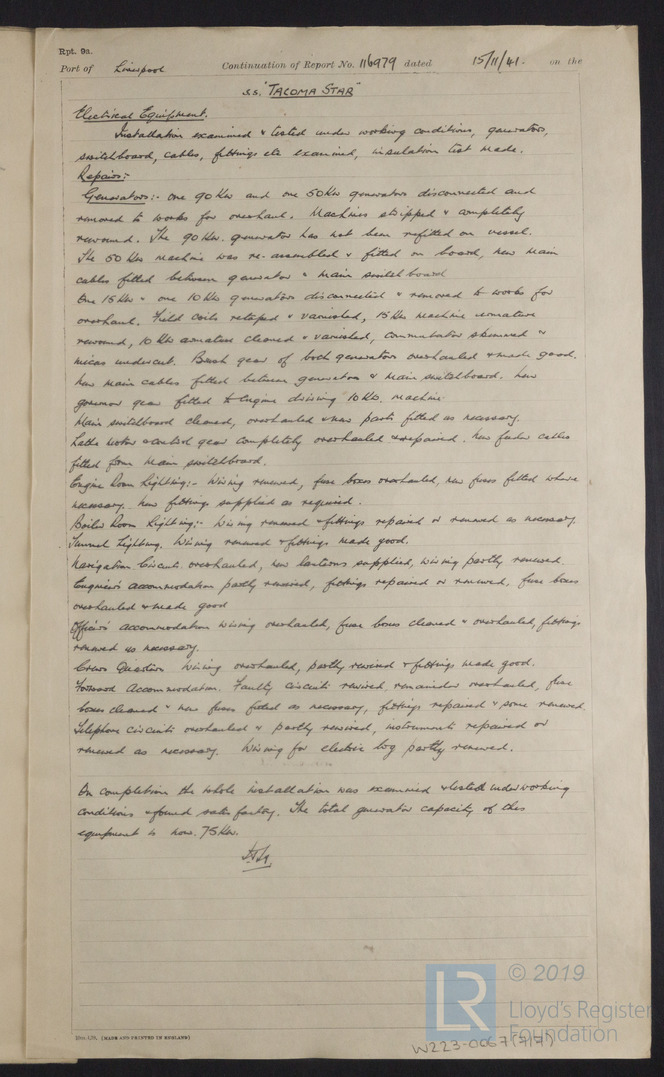 Rpt. 9a.
Port of Liverpool Continuation of Report No. 116979 dated 15/11/41. on the
s.s. "TACOMA STAR"
Electrical Equipment.
Installation examined & tested under working conditions, generators,
switchboard, cables, fittings etc examined, insulation test made.
Repairs:-
Generators:- One 90Kw and one 50Kw generators disconnected and
removed to works for overhaul. Machines stripped & completely
rewound. The 90Kw. generator has not been refitted on vessel.
The 50Kw machine was re-assembled & fitted on board, new main
cables fitted between generator & main switchboard
One 15Kw & one 10Kw generators disconnected & removed to works for
overhaul. Field coils retaped & varnished, 15Kw machine armature
rewound, 10Kw armature cleaned & varnished, commutator skimmed &
micas undercut. Brush gear of both generators overhauled & made good.
New main cables fitted between generators & main switchboard. New
governor gear fitted to engine driving 10Kw. machine.
Main switchboard cleaned, overhauled & new parts fitted as necessary.
Lathe motor & control gear completely overhauled & repaired. New feeder cables
fitted from main switchboard.
Engine Room Lighting:- Wiring renewed, fuse boxes overhauled, new fuses fitted where
necessary. New fittings supplied as required.
Boiler Room Lighting:- Wiring renewed & fittings repaired or renewed as necessary.
Tunnel Lighting. Wiring renewed & fittings made good.
Navigation Circuit overhauled, new lanterns supplied, wiring partly renewed.
Engineers accommodation partly rewired, fittings repaired or renewed, fuse boxes
overhauled & made good
Officers accommodation wiring overhauled, fuse boxes cleaned & overhauled, fittings
renewed as necessary.
Crews Quarters wiring overhauled, partly rewired & fittings made good.
Forward Accommodation. Faulty circuits rewired, remainder overhauled, fuse
boxes cleaned & new fuses fitted as necessary, fittings repaired & some renewed.
Telephone circuits overhauled & partly rewired, instruments repaired or
renewed as necessary. Wiring for electric log partly renewed.
On completion the whole installation was examined & tested under working
conditions & found satisfactory. The total generator capacity of this
equipment is now 75Kw.
(MADE AND PRINTED IN ENGLAND)
© 2019
LR
Lloyd's Register
Foundation
W223-0067(7/7)